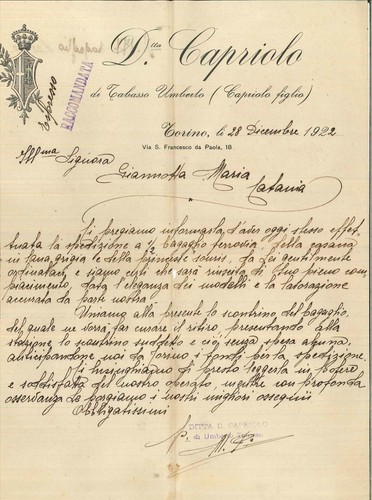 Espresso
RACCOMANDATA
D.tta Capriolo
di Tabasso Umberto (Capriolo figlio)
Torino, li 28 Dicembre 1922
Via S. Francesco da Paola, 18
Ill.ma Signora
Giannotta Maria
Catania
Ci pregiamo informarla d'aver oggi stesso effet-
tuata la spedizione a 1/2 bagaglio ferrovia, della casacca
in lana grigia e della souris, da Lei gentilmente
ordinataci, e siamo certi che sarà riuscita di Suo pieno com-
piacimento, data l'eleganza dei modelli e la lavorazione
accurata da parte nostra.
Uniamo alla presente lo scontrino del bagaglio,
del quale ne vorrà far curare il ritiro, presentando alla
stazione lo scontrino suddetto e ciò senza spesa alcuna,
anticipandone noi da Torino i fondi per la spedizione.
Ci lusinghiamo di presto leggerla in potere
e soddisfatta del nostro operato, mentre con profonda
osservanza Le porgiamo i nostri migliori ossequi
Obbligatissimi
DITTA D. CAPRIOLO
di Umberto Tabasso